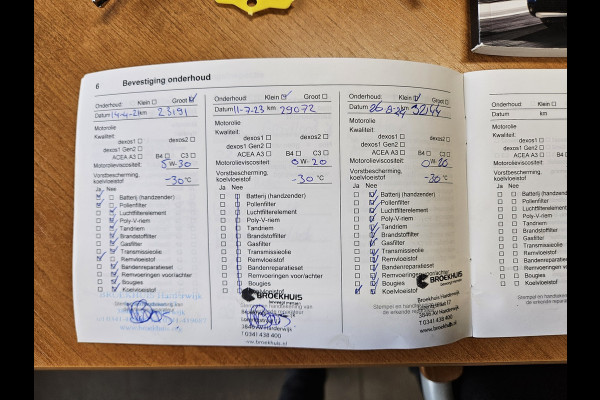 6 Bevestiging onderhoud
Onderhoud: Klein ☐ Groot ☑
Datum 14-4-21 km 23191
Motorolie
Kwaliteit:
dexos1 ☐ dexos2 ☐
dexos1 Gen2 ☐
ACEA A3 ☐ B4 ☐ C3 ☐
Motorolieviscositeit: 5 W-30
Vorstbescherming,
koelvloeistof -30 °C
Ja Nee
Batterij (handzender)
Pollenfilter
Luchtfilterelement
Poly-V-riem
Tandriem
Brandstoffilter
Gasfilter
Transmissieolie
Remvloeistof
Bandenreparatieset
Remvoeringen voor/achter
Bougies
Koelvloeistof
Onderhoud: Klein ☑ Groot ☐
Datum 11-7-23 km 29072
Motorolie
Kwaliteit:
dexos1 ☐ dexos2 ☐
dexos1 Gen2 ☐
ACEA A3 ☐ B4 ☐ C3 ☐
Motorolieviscositeit: 0 W-20
Vorstbescherming,
koelvloeistof -30 °C
Ja Nee
Batterij (handzender)
Pollenfilter
Luchtfilterelement
Poly-V-riem
Tandriem
Brandstoffilter
Gasfilter
Transmissieolie
Remvloeistof
Bandenreparatieset
Remvoeringen voor/achter
Bougies
Koelvloeistof
BROEKHUIS
3846 AV Harderwijk
T 0341 438 400
www.broekhuis.nl
Onderhoud: Klein ☑ Groot ☐
Datum 26-8-24 km 32144
Motorolie
Kwaliteit:
dexos1 ☐ dexos2 ☐
dexos1 Gen2 ☐
ACEA A3 ☐ B4 ☐ C3 ☐
Motorolieviscositeit: 0 W-20
Vorstbescherming,
koelvloeistof -30 °C
Ja Nee
Batterij (handzender)
Pollenfilter
Luchtfilterelement
Poly-V-riem
Tandriem
Brandstoffilter
Gasfilter
Transmissieolie
Remvloeistof
Bandenreparatieset
Remvoeringen voor/achter
Bougies
Koelvloeistof
BROEKHUIS
Broekhuis Harderwijk
3846 AV Harderwijk
T 0341 438 400
www.broekhuis.nl
Onderhoud: Klein ☐
Datum km
Motorolie
Kwaliteit:
dexos1 ☐
dexos1 Gen2 ☐
ACEA A3 ☐
Motorolieviscositeit:
Vorstbescherming,
koelvloeistof
Ja Nee
Batterij (handze
Pollenfilter
Luchtfilterelemen
Poly-V-riem
Tandriem
Brandstoffilter
Gasfilter
Transmissieolie
Remvloeistof
Bandenreparaties
Remvoeringen vo
Bougies
Koelvloeistof
Stempel en handteken
de erkende reparateur